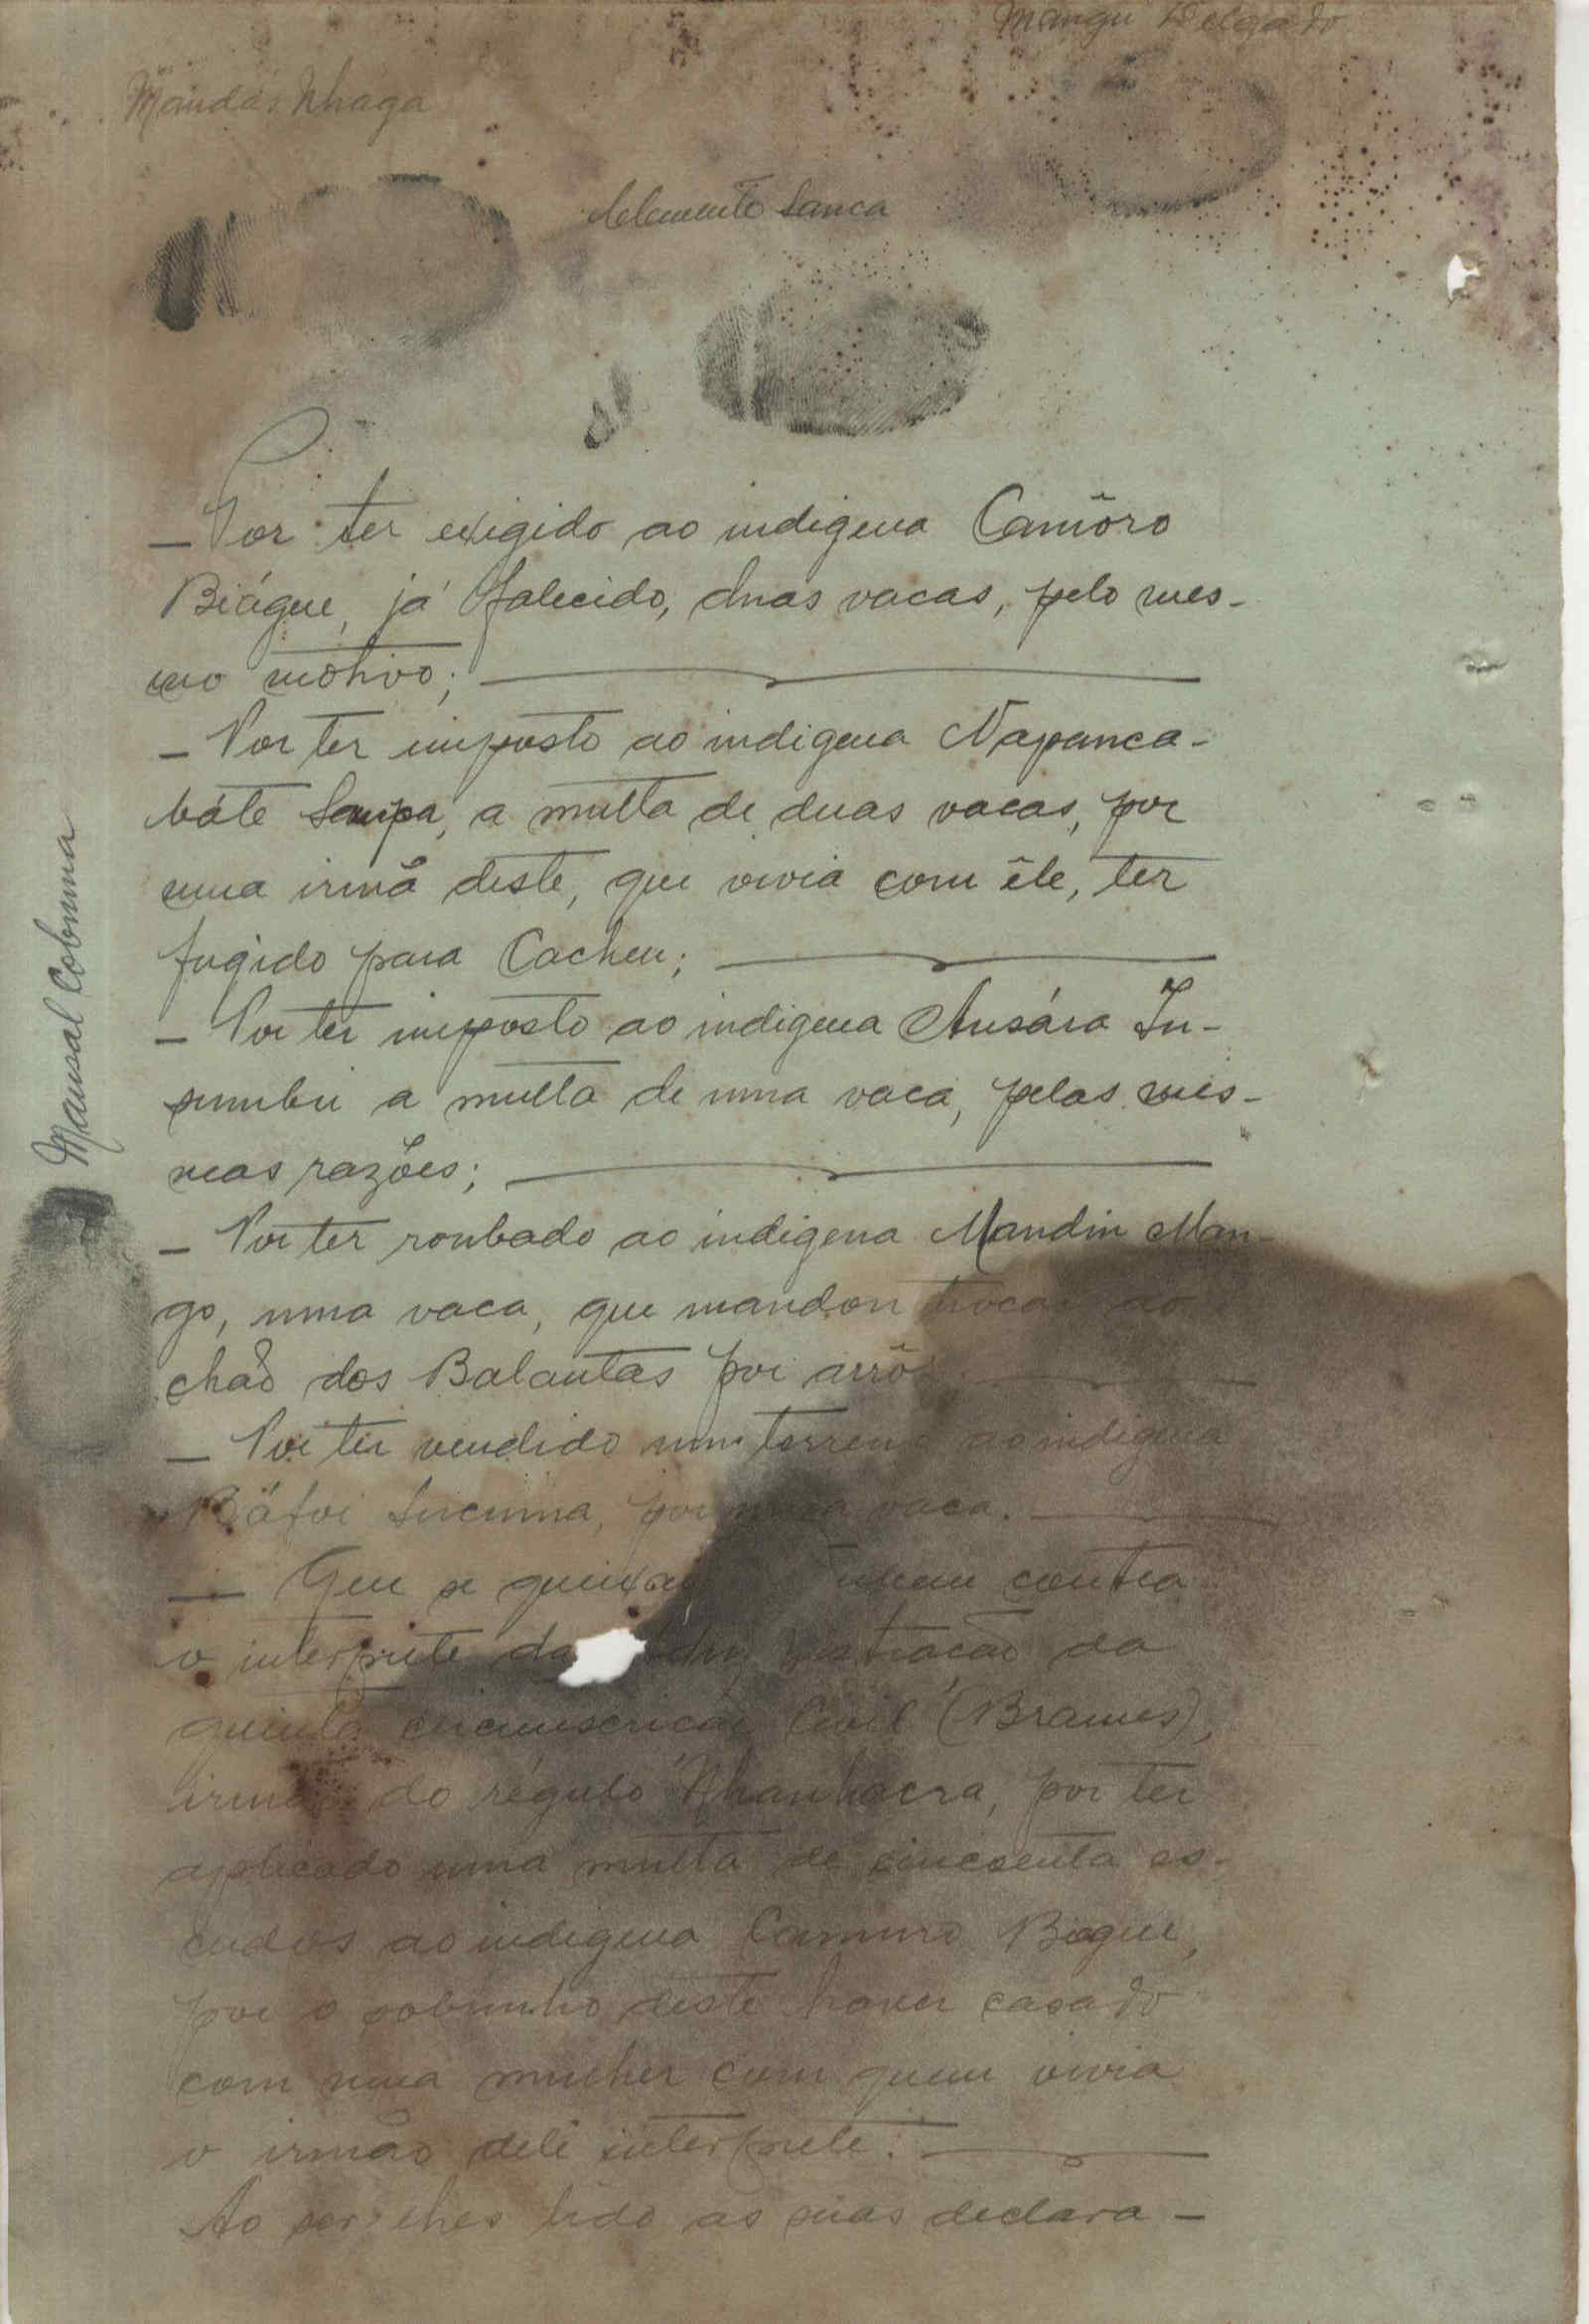 Mangu Delgado
Mandás Nhaga
Clemente Sanca
— Por ter exigido ao indigena Camôro
Biágue, já falecido, duas vacas, pelo mes-
mo motivo;
— Por ter imposto ao indigena Napanca-
báte Sampa, a multa de duas vacas, por
uma irmã deste, que vivia com êle, ter
fugido para Cacheu;
— Por ter imposto ao indigena Ansára In-
sumbu a multa de uma vaca, pelas mes-
mas razões;
— Por ter roubado ao indigena Mandin Man-
go, uma vaca, que mandou trocar ao
chaõ dos Balantas por arrôs
— Por ter vendido um terreno ao indigena
Bäfoi Sucuma, por uma vaca.
— Que se queixam contra
o interprete da
quinta circunscricaõ Civil (Brames),
irmaõ do régulo Nhanhacra, por ter
aplicado uma multa de cincoenta es-
cudos ao indigena Camuro Biague,
por o sobrinho deste haver casado
com uma mulher com quem vivia
o irmão dele interprete.
Ao ser-lhes lido as suas declara-
Mansal Cobumna